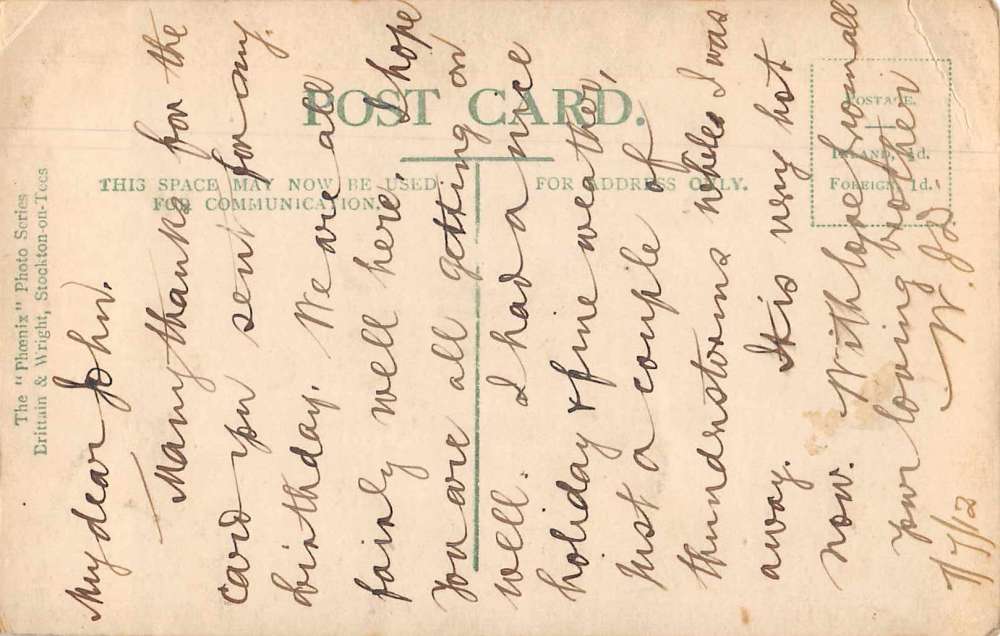 POST CARD.
THIS SPACE MAY NOW BE USED
FOR COMMUNICATION.
FOR ADDRESS ONLY.
POSTAGE.
INLAND, ½d.
FOREIGN, 1d.
The "Phœnix" Photo Series
Brittain & Wright, Stockton-on-Tees
My dear John.
Many thanks for the
card you sent for my
birthday. We are all
fairly well here, I hope
You are all getting on
well. I had a nice
holiday & fine weather,
Just a couple of
thunderstorms whiles I was
away. It is very hot
now. With love from all
your loving brother
W.
7/7/12